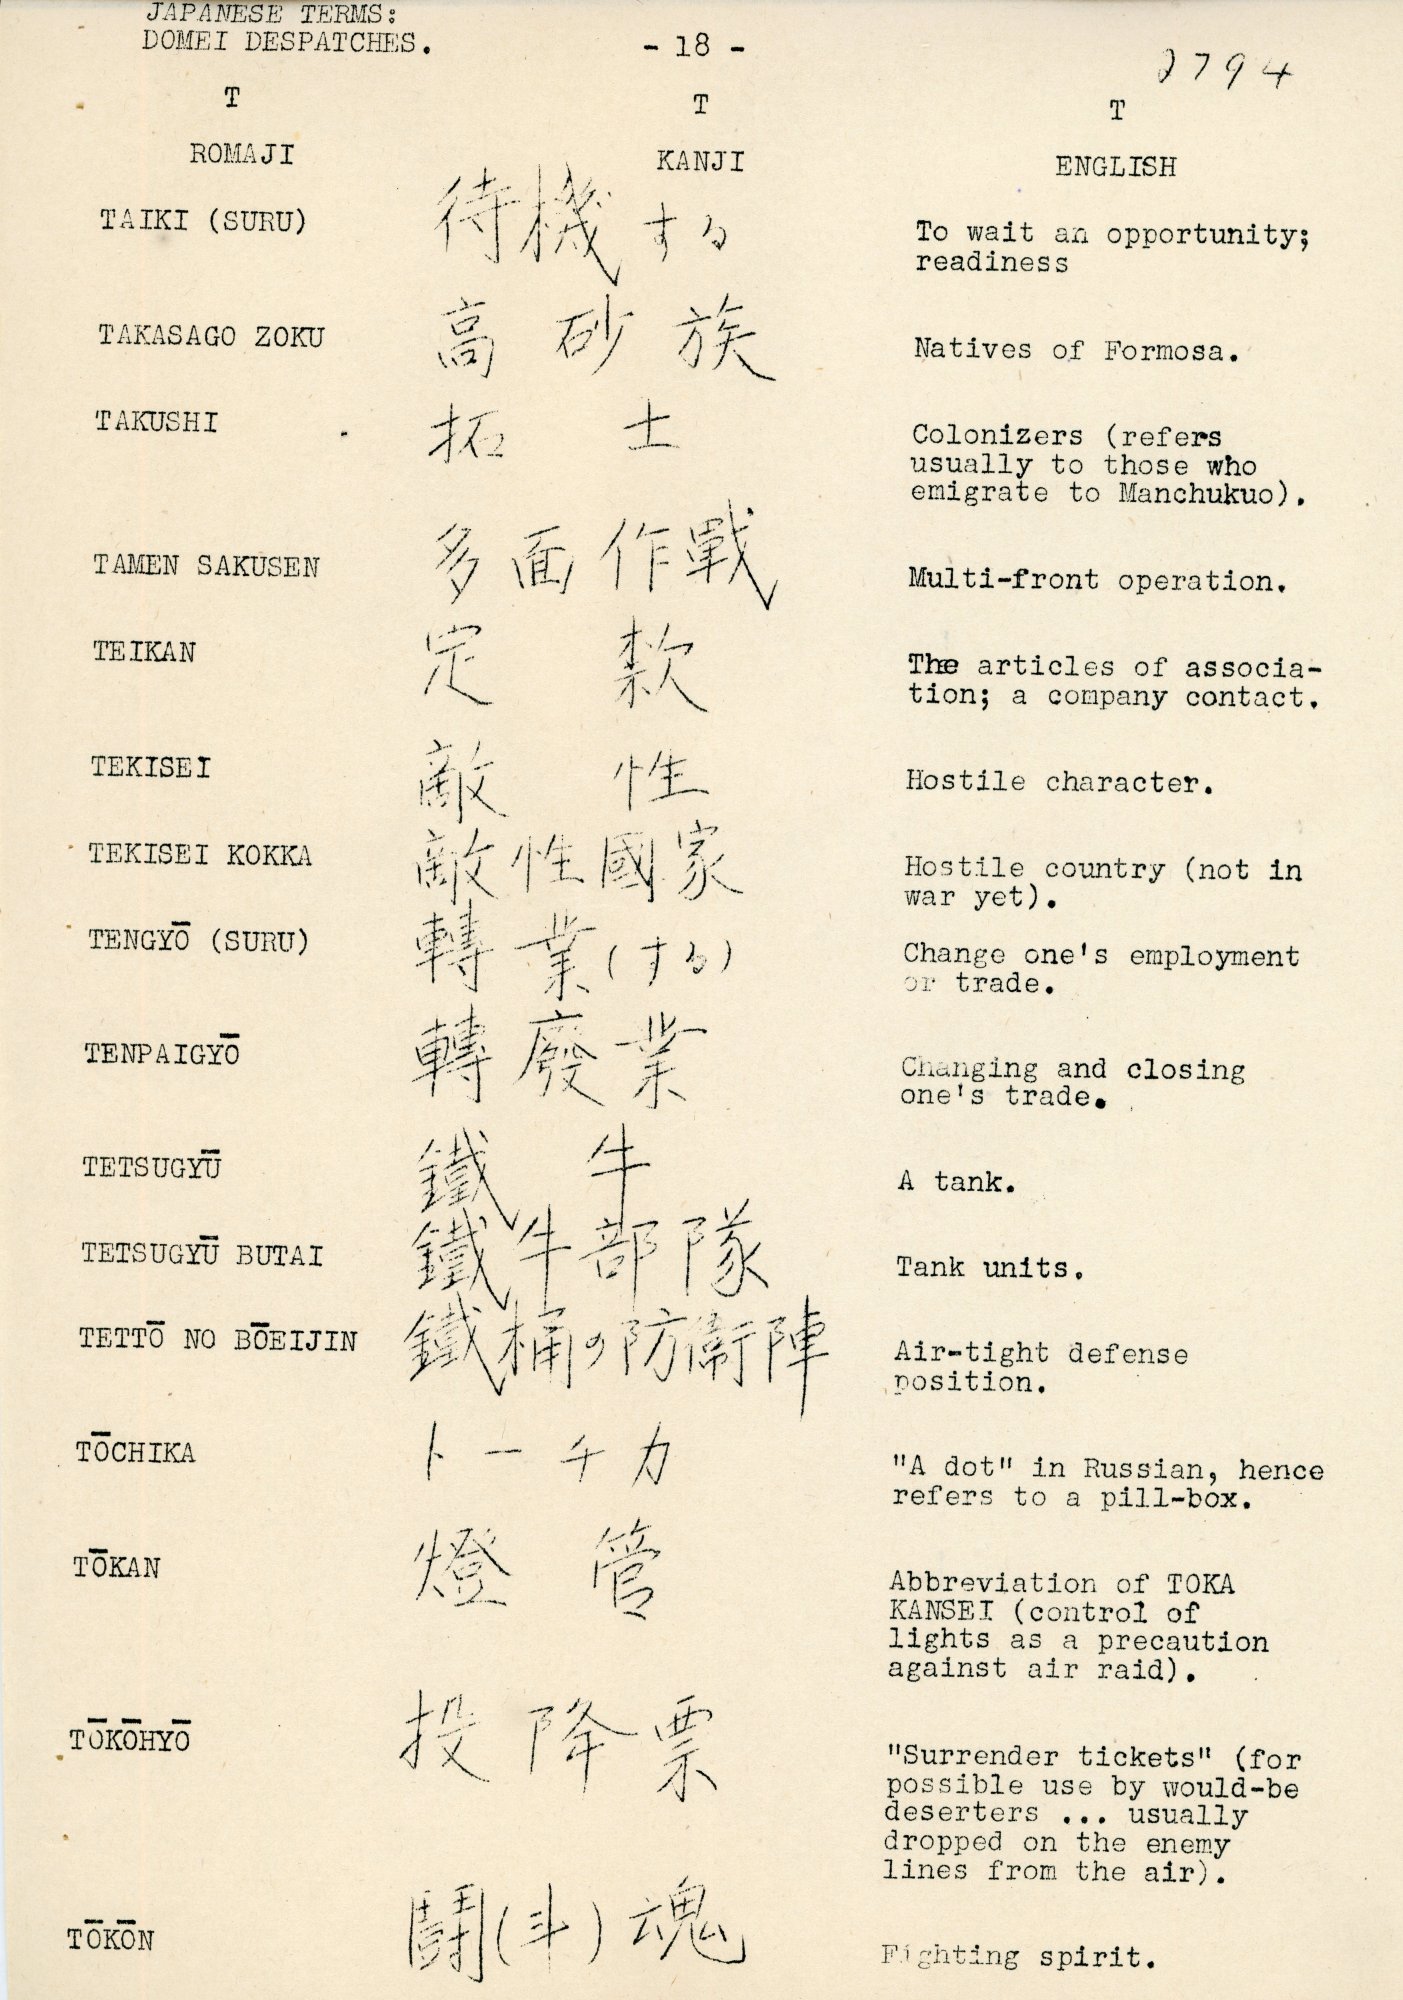 JAPANESE TERMS:
DOMEI DESPATCHES.
- 18 -
2794
T T T
ROMAJI KANJI ENGLISH
TAIKI (SURU) 待機する To wait an opportunity;
readiness
TAKASAGO ZOKU 高砂族 Natives of Formosa.
TAKUSHI 拓士 Colonizers (refers
usually to those who
emigrate to Manchukuo).
TAMEN SAKUSEN 多面作戰 Multi-front operation.
TEIKAN 定款 The articles of associa-
tion; a company contact.
TEKISEI 敵性 Hostile character.
TEKISEI KOKKA 敵性國家 Hostile country (not in
war yet).
TENGYŌ (SURU) 轉業(する) Change one's employment
or trade.
TENPAIGYŌ 轉廢業 Changing and closing
one's trade.
TETSUGYŪ 鐵牛 A tank.
TETSUGYŪ BUTAI 鐵牛部隊 Tank units.
TETTŌ NO BŌEIJIN 鐵桶の防衛陣 Air-tight defense
position.
TŌCHIKA トーチカ "A dot" in Russian, hence
refers to a pill-box.
TŌKAN 燈管 Abbreviation of TOKA
KANSEI (control of
lights as a precaution
against air raid).
TŌKŌHYŌ 投降票 "Surrender tickets" (for
possible use by would-be
deserters ... usually
dropped on the enemy
lines from the air).
TŌKŌN 鬪(斗)魂 Fighting spirit.